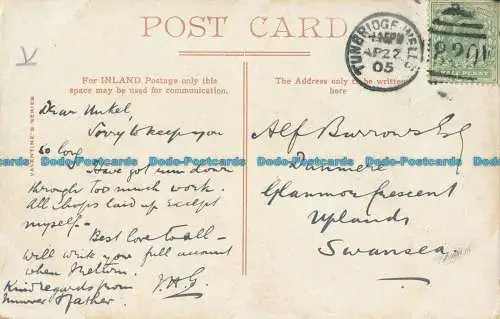 POST CARD
TUNBRIDGE WELLS
AP 22
05
820
HALF PENNY
For INLAND Postage only this
space may be used for communication.
The Address only to be written
here
VALENTINE'S SERIES
Dear Unkel,
Sorry to keep you
so long
Have got run down
through too much work.
All chaps laid up except
myself -
Best love to all -
Will write you full account
when I return.
Kind regards from
father.
J.H.G
Alf Burrows Esq
Danmere
Glanmor Crescent
Uplands
Swansea
Postcards